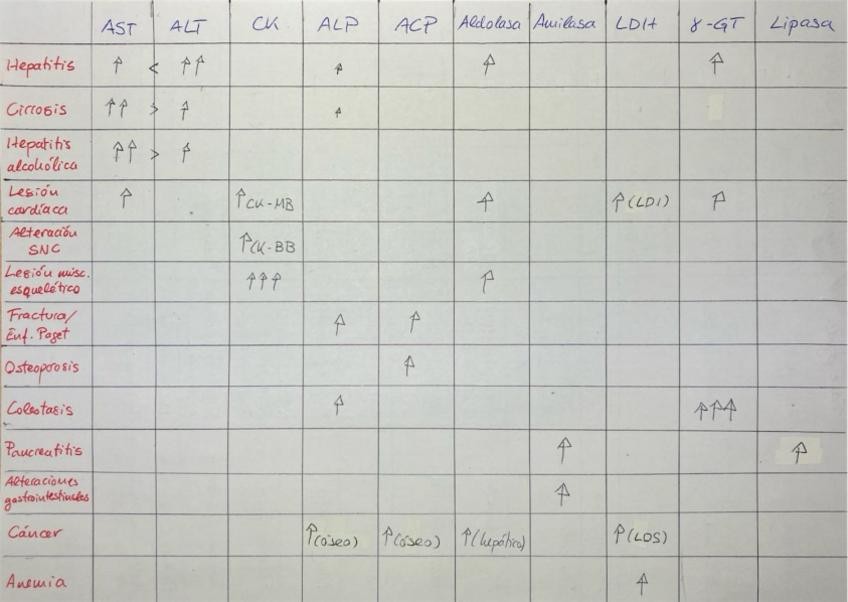 AST ALT CK ALP ACP Aldolasa Amilasa LDH γ-GT Lipasa
Hepatitis ↑ < ↑↑ ↑ ↑ ↑
Cirrosis ↑↑ > ↑ ↑
Hepatitis
alcohólica ↑↑ > ↑
Lesión
cardíaca ↑ ↑CK-MB ↑ ↑(LD1) ↑
Alteración
SNC ↑CK-BB
Lesión musc.
esquelético ↑↑↑ ↑
Fractura/
Enf. Paget ↑ ↑
Osteoporosis ↑
Colestasis ↑ ↑↑↑
Pancreatitis ↑ ↑
Alteraciones
gastrointestinales ↑
Cáncer ↑(óseo) ↑(óseo) ↑(hepático) ↑(LD5)
Anemia ↑